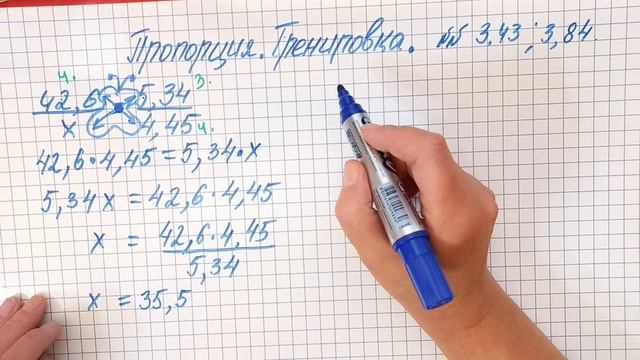 Пропорция. Тренировка. №№ 3.43; 3,84
ч.
42,6 5,34 з.
x 4,45 ч.
42,6·4,45=5,34·x
5,34x = 42,6·4,45
x = 42,6·4,45
5,34
x = 35,5